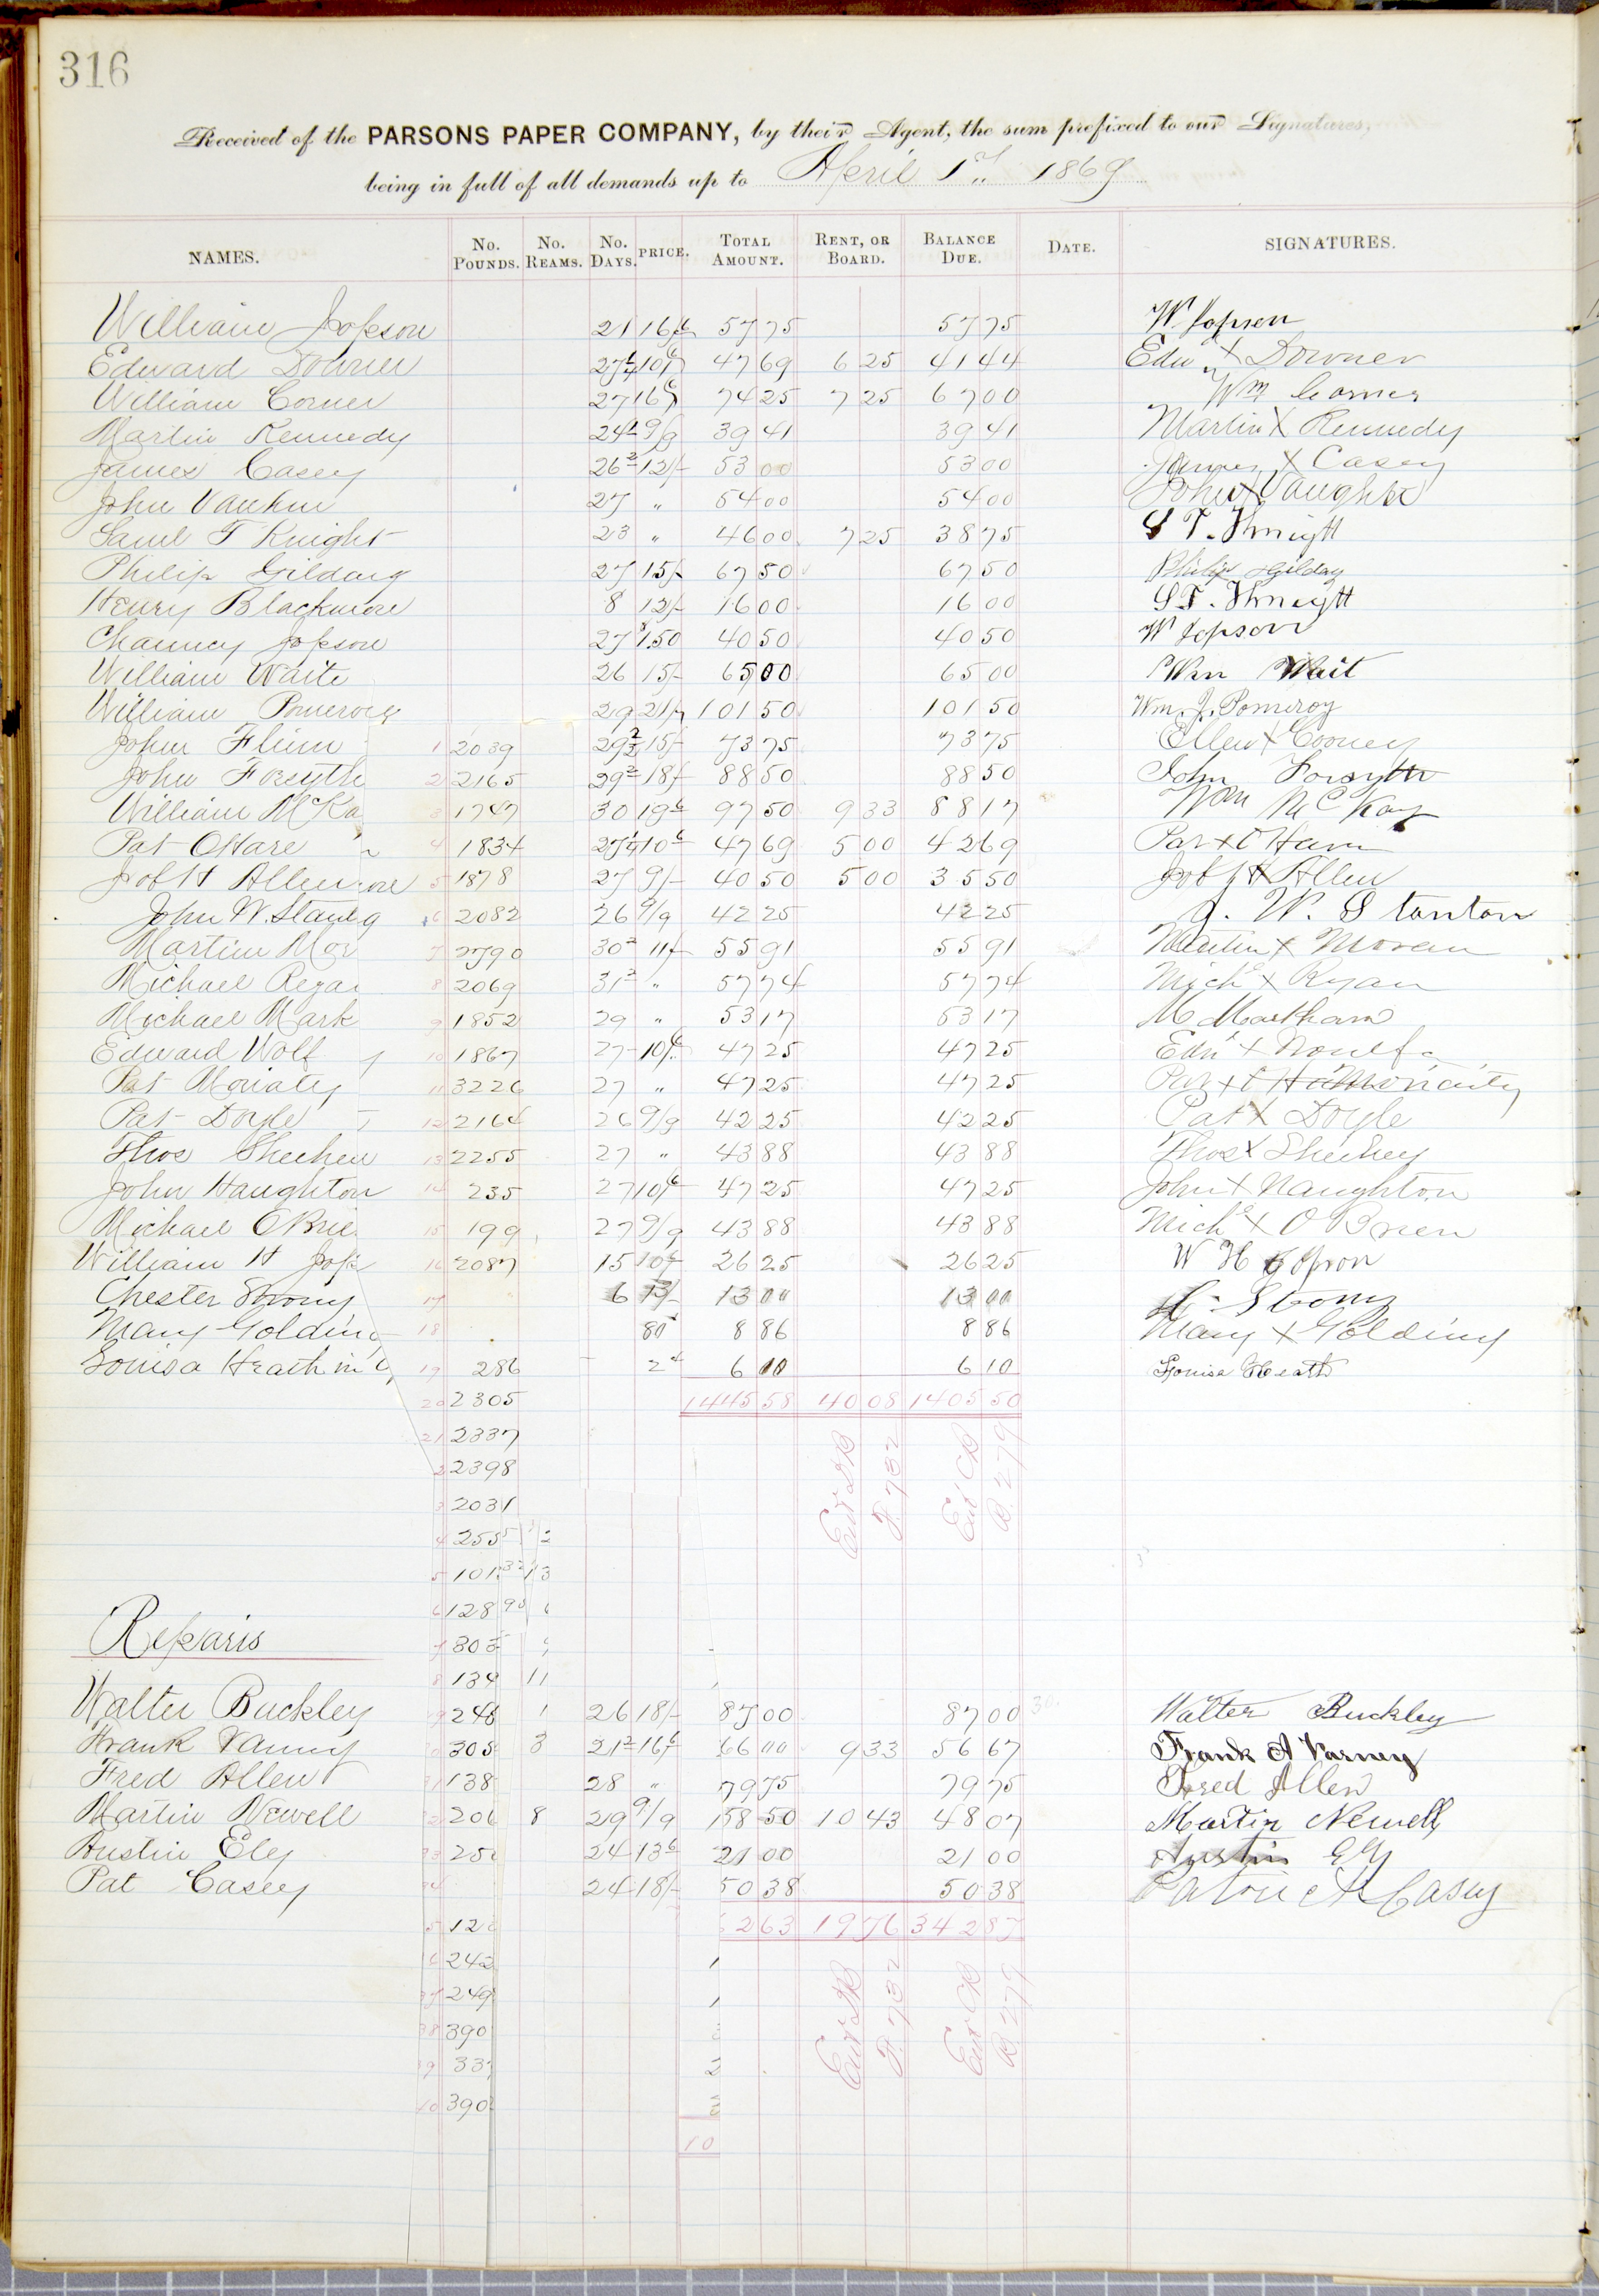 316
Received of the PARSONS PAPER COMPANY, by their Agent, the sum prefixed to our Signatures,
being in full of all demands up to April 1st 1869
NAMES. No. POUNDS. No. REAMS. No. DAYS. PRICE. TOTAL AMOUNT. RENT, OR BOARD. BALANCE DUE. DATE. SIGNATURES.
William Jopson 21 16/6 57 75 57 75 W Jopson
Edward Downer 27 1/4 10/6 47 69 6 25 41 44 Edw X Downer
William Corner 27 16/6 74 25 7 25 67 00 Wm Corner
Martin Kennedy 24 1 9/9 39 41 39 41 Martin X Kennedy
James Casey 26 2 12/- 53 00 53 00 James X Casey
John Vauhn 27 " 54 00 54 00 John X Vaughn
Saml T Knight 23 " 46 00 7 25 38 75 S T. Knight
Philip Gilday 27 15/- 67 50 67 50 Philip Gilday
Henry Blackmore 8 12/- 16 00 16 00 S T. Knight
Chauncy Jopson 27 1.50 40 50 40 50 W Jopson
William Waite 26 15/- 65 00 65 00 Wm Wait
William Pomeroy 29 21/- 101 50 101 50 Wm. J. Pomeroy
John Flinn 1 2039 29 2 15/- 73 75 73 75 Ellen X Cooney
John Forsyth 2 2165 29 2 18/- 88 50 88 50 John Forsyth
William McKa 3 1747 30 19 6 97 50 9 33 88 17 Wm McKay
Pat OHare 4 1834 27 1/4 10 6 47 69 5 00 42 69 Pat X OHare
Job H Allen 5 1878 27 9/- 40 50 5 00 35 50 Job H Allen
John W. Stan 6 2082 26 9/9 42 25 42 25 J. W. Stanton
Martin Mor 7 2790 30 2 11/- 55 91 55 91 Martin X Moran
Michael Regan 8 2069 31 2 " 57 74 57 74 Michl X Ryan
Michael Mark 9 1852 29 " 53 17 53 17 M Markham
Edward Wolf 10 1867 27 10/6 47 25 47 25 Edwd X
Pat Moriaty 11 3226 27 " 47 25 47 25 Pat X Moriarity
Pat Doyle 12 2164 26 9/9 42 25 42 25 Pat X Doyle
Thos Sheehen 13 2255 27 " 43 88 43 88 Thos X Sheehey
John Haughton 14 235 27 10/6 47 25 47 25 John X Naughton
Michael OBrie 15 199 27 9/9 43 88 43 88 Michl X OBrien
William H Jop 16 2087 15 10/6 26 25 26 25 W H Jopson
Chester Strong 17 6 13/- 13 00 13 00 C. Strong
Mary Golding 18 80 8 86 8 86 Mary X Golding
Louisa Heath 19 286 2 4 6 10 6 10 Louisa Heath
20 2305 1445 58 40 08 1405 50
21 2337
2 2398
3 2031
4 255
5 101
6 128
7 303
Reparis
8 134 11
Walter Buckley 248 1 26 18/- 87 00 87 00 Walter Buckley
Frank Varney 305 3 21 2 16/6 66 00 9 33 56 67 Frank A Varney
Fred Allen 31 138 28 " 79 75 79 75 Fred Allen
Martin Newell 206 8 29 9/9 58 50 10 43 48 07 Martin Newell
Austin Eley 33 25 24 13 6 21 00 21 00 Austin Ely
Pat Casey 34 24 18/- 50 38 50 38 Patrick Casey
5 12 263 19 76 342 87
6 242
37 249
38 390
39 33
40 390
10